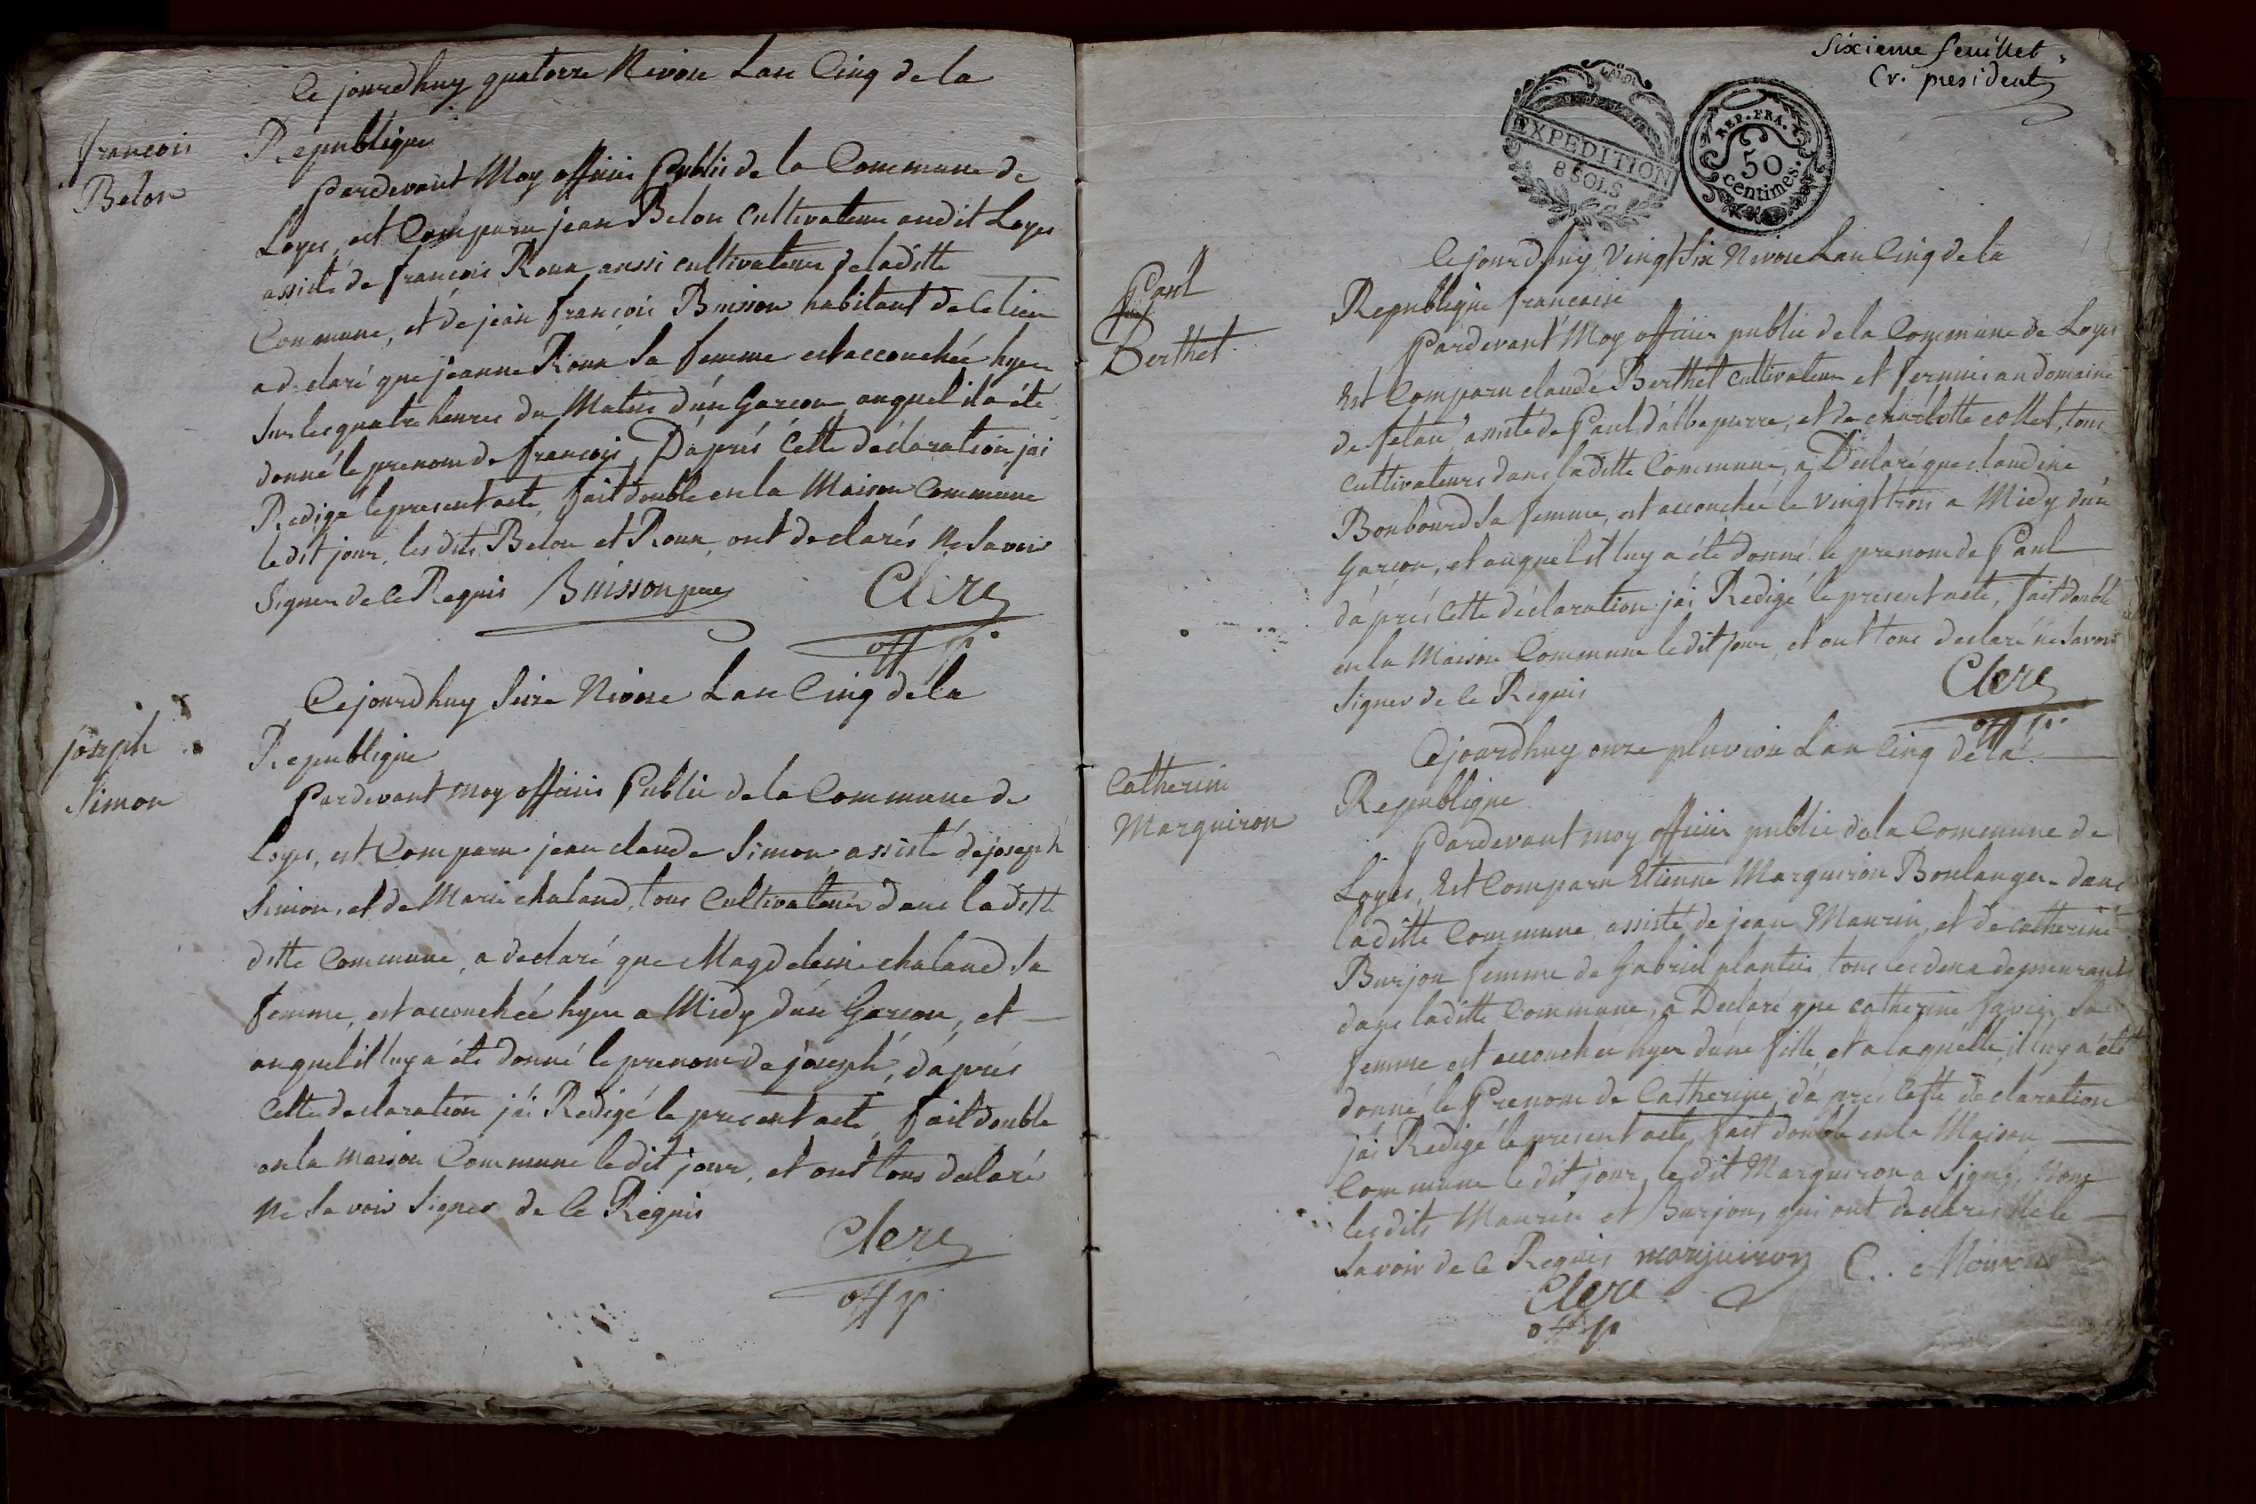 Ce jourdhuy quatorze Nivose Lan Cinq de la
françois
Belon
Republique
Pardevant Moy officier Public de la Commune de
Loyes, est Comparu jean Belon Cultivateur audit Loyes
assisté de françois Roux aussi cultivateur de laditte
Commune, et de jean françois Buisson habitant de Ce lieu
a déclaré que jeanne Roux Sa femme est accouchée hyer
Sur les quatre heures du Matin d'un Garcon auquel il a été
donné le prenom de françois, D'aprés Cette déclaration j'ai
Redigé le present acte, fait double en la Maison Commune
le dit jour, les dits Belon et Roux, ont declarés Ne Savoir
Signer de Ce Requis Buisson pere Clerc
off p.
Ce jourdhuy Seize Nivose Lan Cinq de la
joseph
Simon
Republique
Pardevant moy officier Public de la Commune de
Loyes, est Comparu jean claude Simon assisté de joseph
Simon, et de Marie chaland, tous Cultivateurs dans laditte
ditte Commune, a declaré que Magdeleine chaland Sa
femme, est accouchée hyer a Midy d'un Garcon, et
auquel il luy a été donné le prenom de joseph, d'aprés
Cette declaration j'ai Redigé le present acte, fait double
en la maison Commune le dit jour, et ont tous declaré
Ne Savoir Signer de Ce Requis
Clerc
off p.
Sixieme feuillet
Cr. president
EXPEDITION
8 SOLS
REP. FRA.
50
centimes.
Ce jourdhuy Vingt Six Nivose Lan Cinq de la
Paul
Berthet
Republique francaise
Pardevant Moy officier public de la Commune de Loyes
Est Comparu claude Berthet cultivateur et fermier au domaine
de fetan assisté de Paul d'albepierre, et de charlotte collet, tous
cultivateurs dans laditte Commune, a Déclaré que claudine
Bonbourd Sa femme, est accouchée le vingt trois a Midy d'un
Garcon, et auquel il luy a été donné le prenom de Paul
d'aprés Cette déclaration j'ai Redigé le present acte, fait double
en la Maison Commune le dit jour, et ont tous declaré ne Savoir
Signer de Ce Requis Clerc
off p.
Ce jourdhuy onze pluviose Lan Cinq de la
Catherine
Marguiron
Republique
Pardevant moy officier public de la Commune de
Loyes, Est Comparu Etienne Marguiron Boulanger dans
laditte Commune assisté de jean Maurin, et de catherine
Burjon femme de Gabriel plantier, tous les deux demeurant
dans laditte Commune, a Declaré que catherine Sa
femme est accouchée hyer d'une fille, et a laquelle il luy a été
donné le Prenom de Catherine, d'aprés Cette déclaration
j'ai Redigé le present acte, fait double en la Maison
Commune le dit jour, le dit Marguiron a Signé, Non
les dits Maurin et Burjon, qui ont declarés Ne le
Savoir de Ce Requis marguiron
Clerc
off p